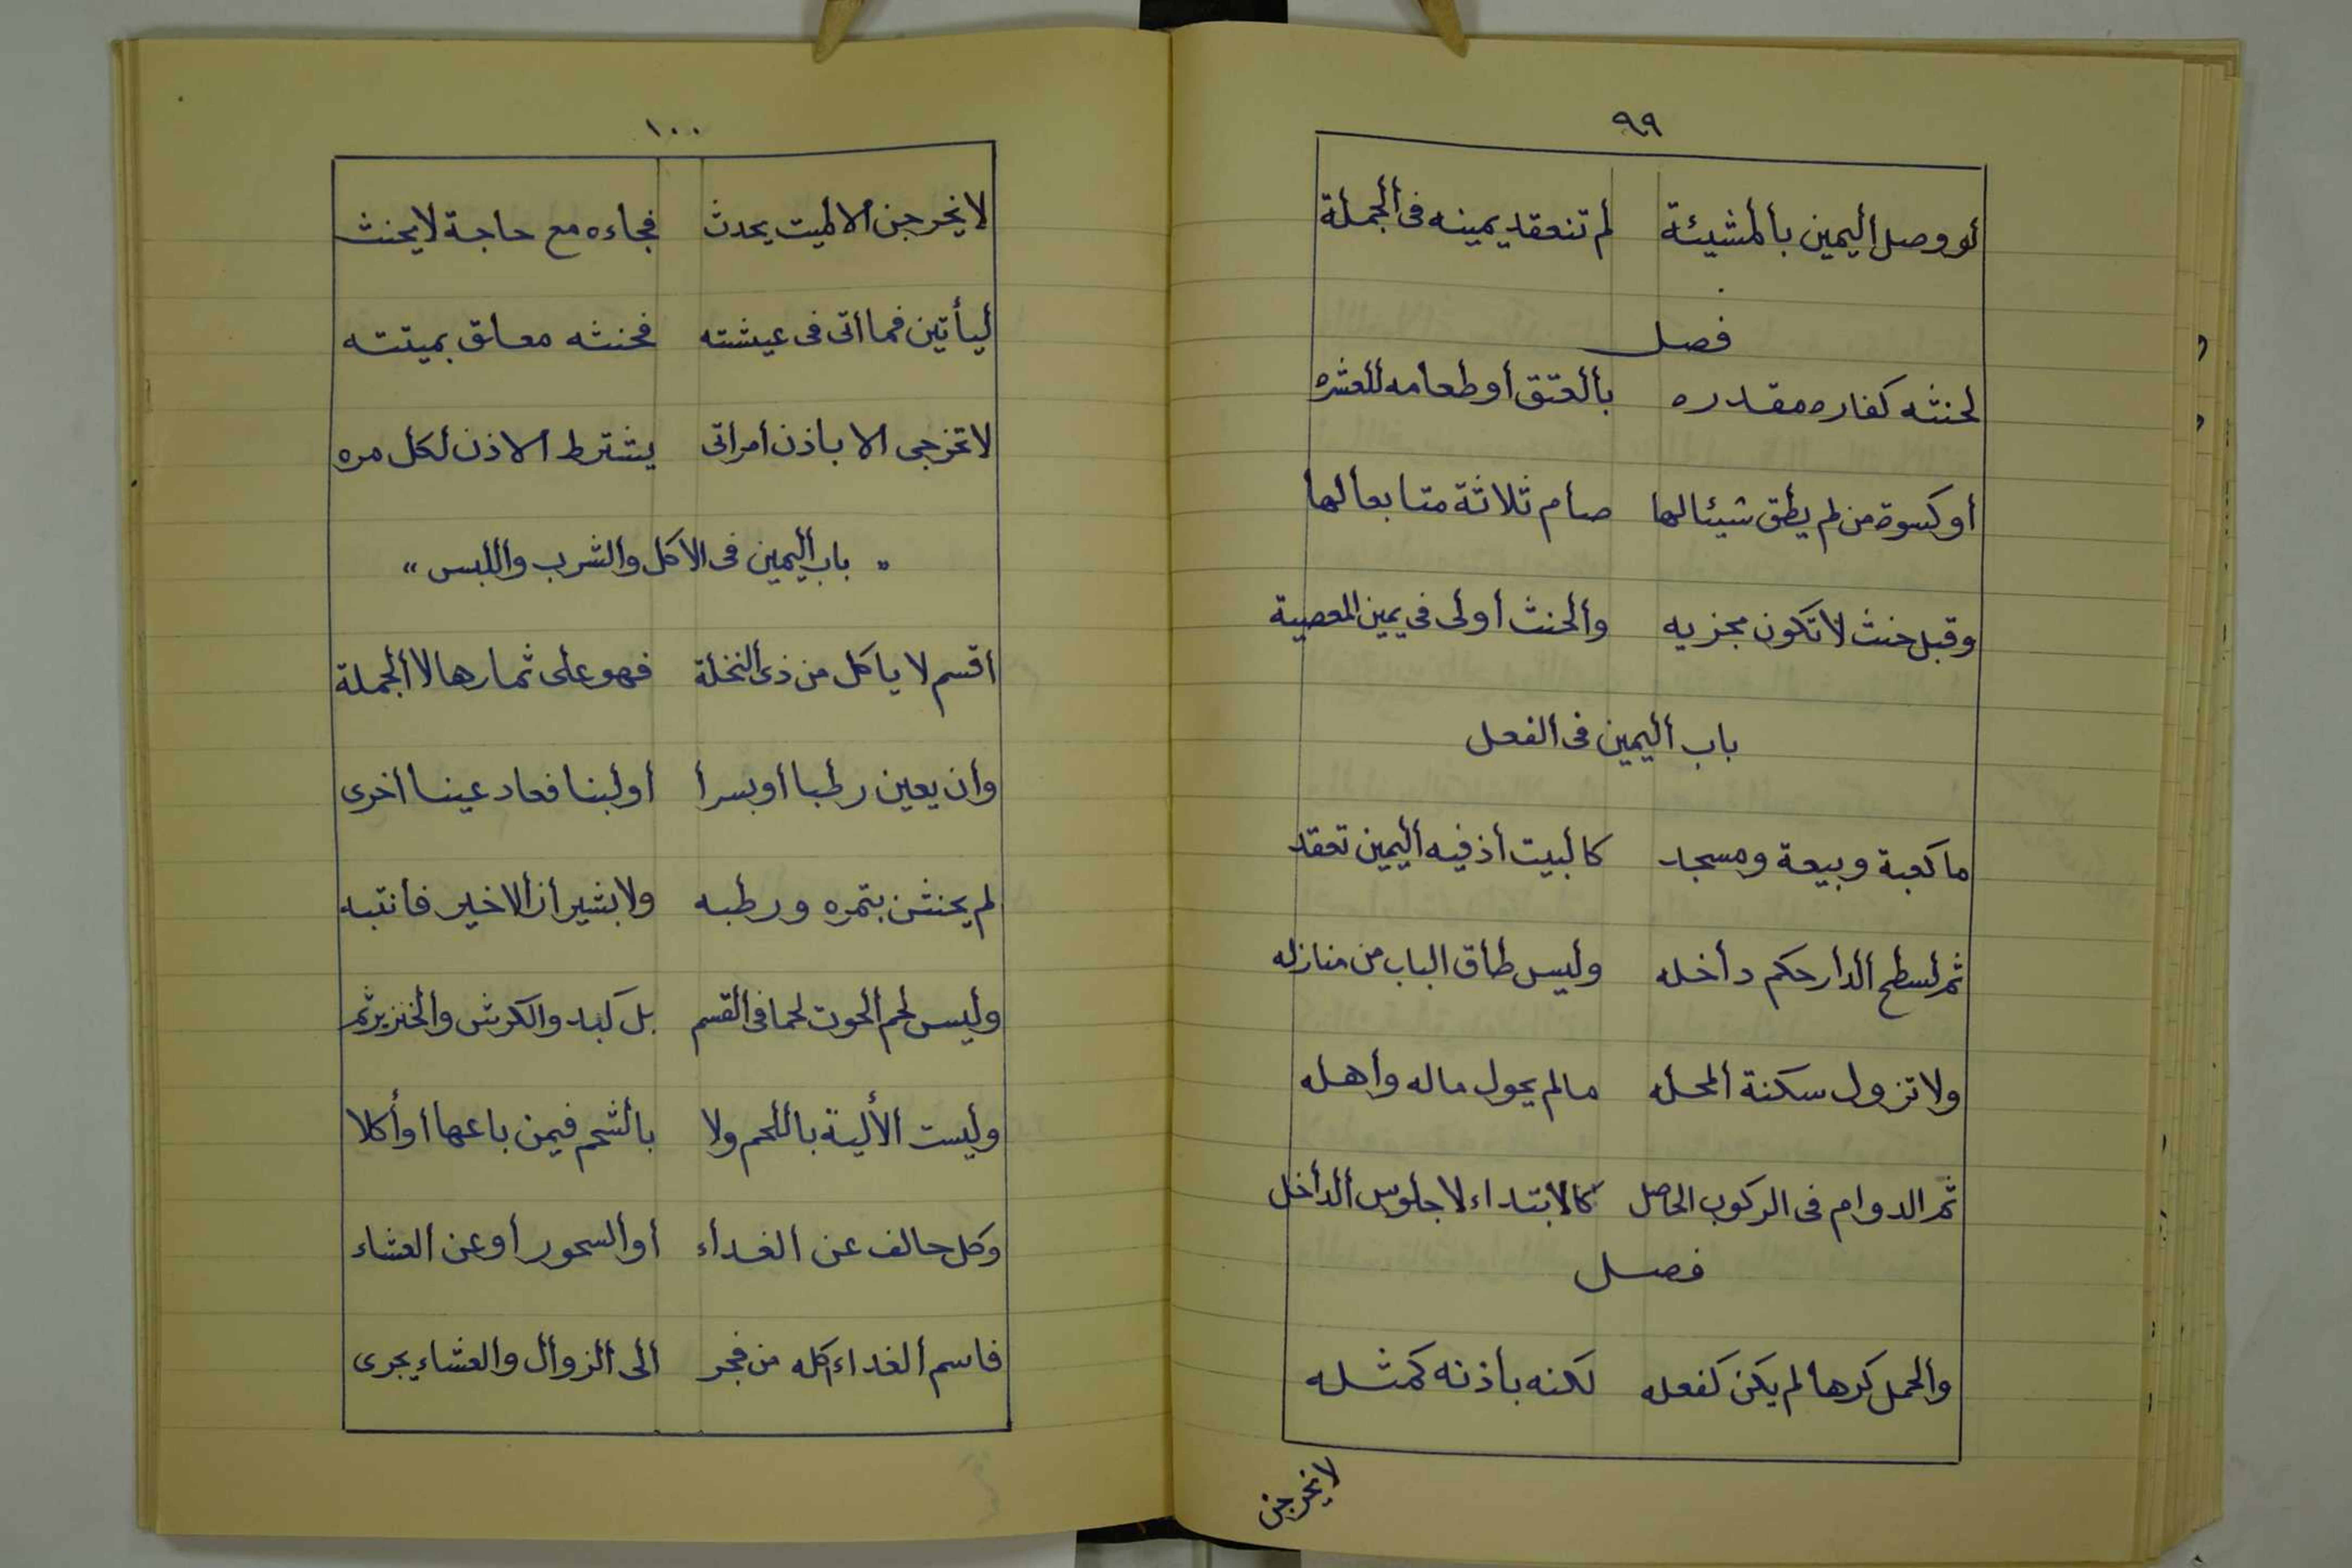 ٩٩
لو وصل اليمين بالمشيئة لم تنعقد يمينه فى الجملة
فصل
لحنثه كفاره مقدره بالعتق أو طعامه للعشره
أو كسوة من لم يطق شيئا لها صام ثلاثة متابعا لها
وقبل حنث لا تكون مجزيه والحنث أولى في يمين المعصية
باب اليمين فى الفعل
ما كعبة وبيعة ومسجد كالبيت أذ فيه اليمين تعقد
ثم لسطح الدار حكم داخله وليس طاق الباب من منازله
ولا تزول سكنة المحله مالم يحول ماله وأهله
ثم الدوام فى الركوب الحاصل كالابتداء لا جلوس الداخل
فصل
والحمل كرها لم يكن كفعله لكنه بأذنه كمثله
لا يخرجن
١٠٠
لا يخرجن الا لميت يحدث فجاءه مع حاجة لا يحنث
ليأتين فما اتى فى عيشته فحنثه معلق بميتته
لا تخرجى الا باذن أمراتى يشترط الاذن لكل مره
" باب اليمين فى الأكل والشرب واللبس "
أقسم لا ياكل من ذى النخلة فهو على ثمارها لا الجملة
وأن يعين رطبا أو بسرا أو لبنا فعاد عينا أخرى
لم يحنثن بتمره ورطبه ولا بشيراز الاخير فانتبه
وليس لحم الحوت لحما فى القسم بل كبد والكرش والخنزير ثم
وليست الألية باللحم ولا بالشحم فيمن باعها أو أكلا
وكل حالف عن الغداء أو السحور أو عن العشاء
فاسم الغداء أكله من فجر الى الزوال والعشاء يجرى